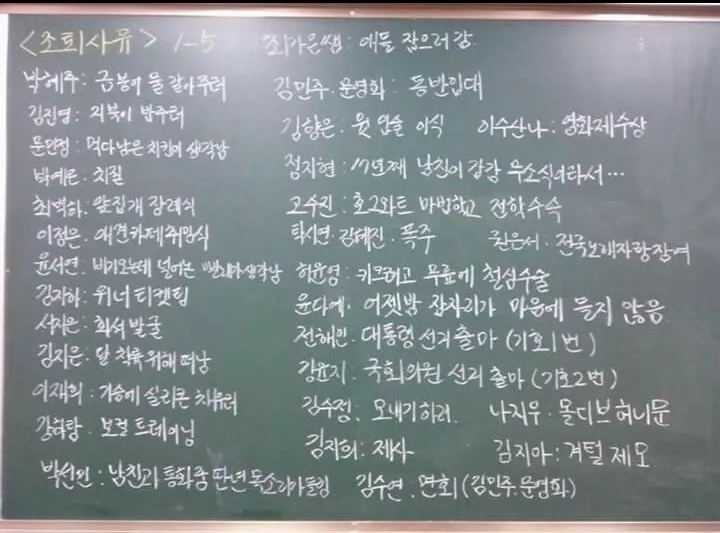 <조퇴사유> 1-5
최가은쌤: 애들 잡으러 감
박혜주: 금붕어 물 갈아주러
김진영: 거북이 밥주러
문민정: 먹다남은 치킨이 생각남
박예른: 치질
최벽하: 앞집개 장례식
이정은: 애견카페 취임식
윤서연: 비가오는데 널어논 빨래가 생각남
김가하: 위너 티켓팅
서지은: 화석 발굴
김지은: 달 착륙 위해 떠남
이재희: 가슴에 실리콘 채우러
강하람: 보컬 트레이닝
박선민: 남친과 통화중 딴년 목소리가 들림
김민주.문영화: 동반입대
김향은: 윗 입술 이식
이수산나: 영화제수상
정지현: 17년째 남친이 감감 무소식이라서...
고수진: 호그와트 마법학교 전학수속
탁시연.김혜진: 폭주
권은서: 전국노래자랑참여
허윤영: 키크려고 무릎에 철심수술
윤다예: 어젯밤 잠자리가 마음에 들지 않음
전해인: 대통령 선거출마 (기호1번)
강윤지: 국회의원 선거 출마 (기호2번)
김수정: 모내기하러
나지우: 몰디브 허니문
김지희: 제사
김지아: 겨털 제모
김수연: 면회 (김민주.문영화)